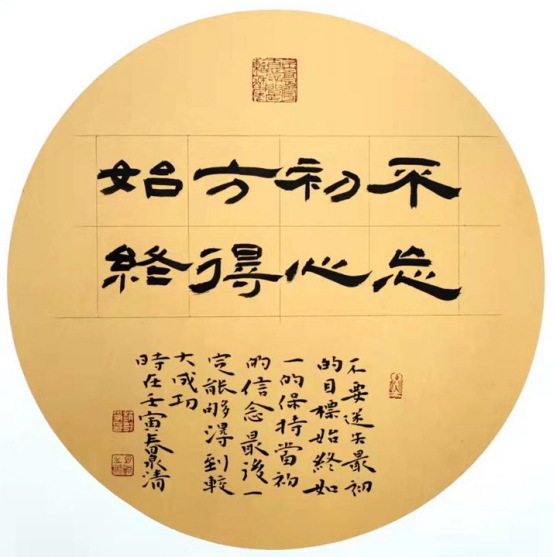 不忘
初心
方得
始終
不要迷失最初
的目標始終如
一的保持當初
的信念最後一
定能夠得到較
大成功
時在壬寅泉清